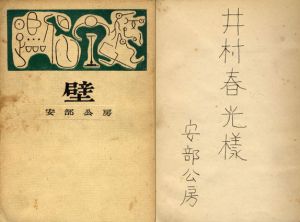 壁
安部公房
井村春光様
安部公房